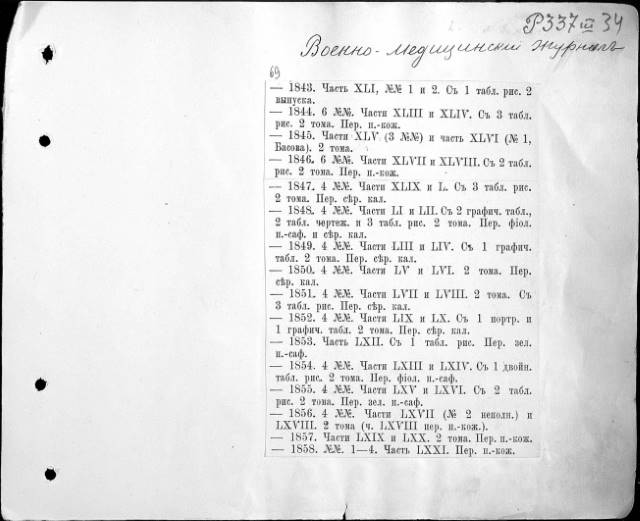 Р337 III 34
Военно-медицинскій журналъ
69
— 1843. Часть XLI, №№ 1 и 2. Съ 1 табл. рис. 2
выпуска.
— 1844. 6 №№. Части XLIII и XLIV. Съ 3 табл.
рис. 2 тома. Пер. п.-кож.
— 1845. Часть XLV (3 №№) и часть XLVI (№ 1,
Басова). 2 тома.
— 1846. 6 №№. Части XLVII и XLVIII. Съ 2 табл.
рис. 2 тома. Пер. п.-кож.
— 1847. 4 №№. Части XLIX и L. Съ 3 табл. рис.
2 тома. Пер. сѣр. кал.
— 1848. 4 №№. Части LI и LII. Съ 2 графич. табл.,
2 табл. чертеж. и 3 табл. рис. 2 тома. Пер. фіол.
п.-саф. и сѣр. кал.
— 1849. 4 №№. Части LIII и LIV. Съ 1 графич.
табл. 2 тома. Пер. сѣр. кал.
— 1850. 4 №№. Части LV и LVI. 2 тома. Пер.
сѣр. кал.
— 1851. 4 №№. Части LVII и LVIII. 2 тома. Съ
3 табл. рис. Пер. сѣр. кал.
— 1852. 4 №№. Части LIX и LX. Съ 1 портр. и
1 графич. табл. 2 тома. Пер. сѣр. кал.
— 1853. Часть LXII. Съ 1 табл. рис. Пер. зел.
п.-саф.
— 1854. 4 №№. Части LXIII и LXIV. Съ 1 двойн.
табл. рис. 2 тома. Пер. фіол. п.-саф.
— 1855. 4 №№. Части LXV и LXVI. Съ 2 табл.
рис. 2 тома. Пер. зел. п.-саф.
— 1856. 4 №№. Части LXVII (№ 2 неполн.) и
LXVIII. 2 тома (ч. LXVIII пер. п.-кож.).
— 1857. Части LXIX и LXX. 2 тома. Пер. п.-кож.
— 1858. №№. 1—4. Часть LXXI. Пер. п.-кож.